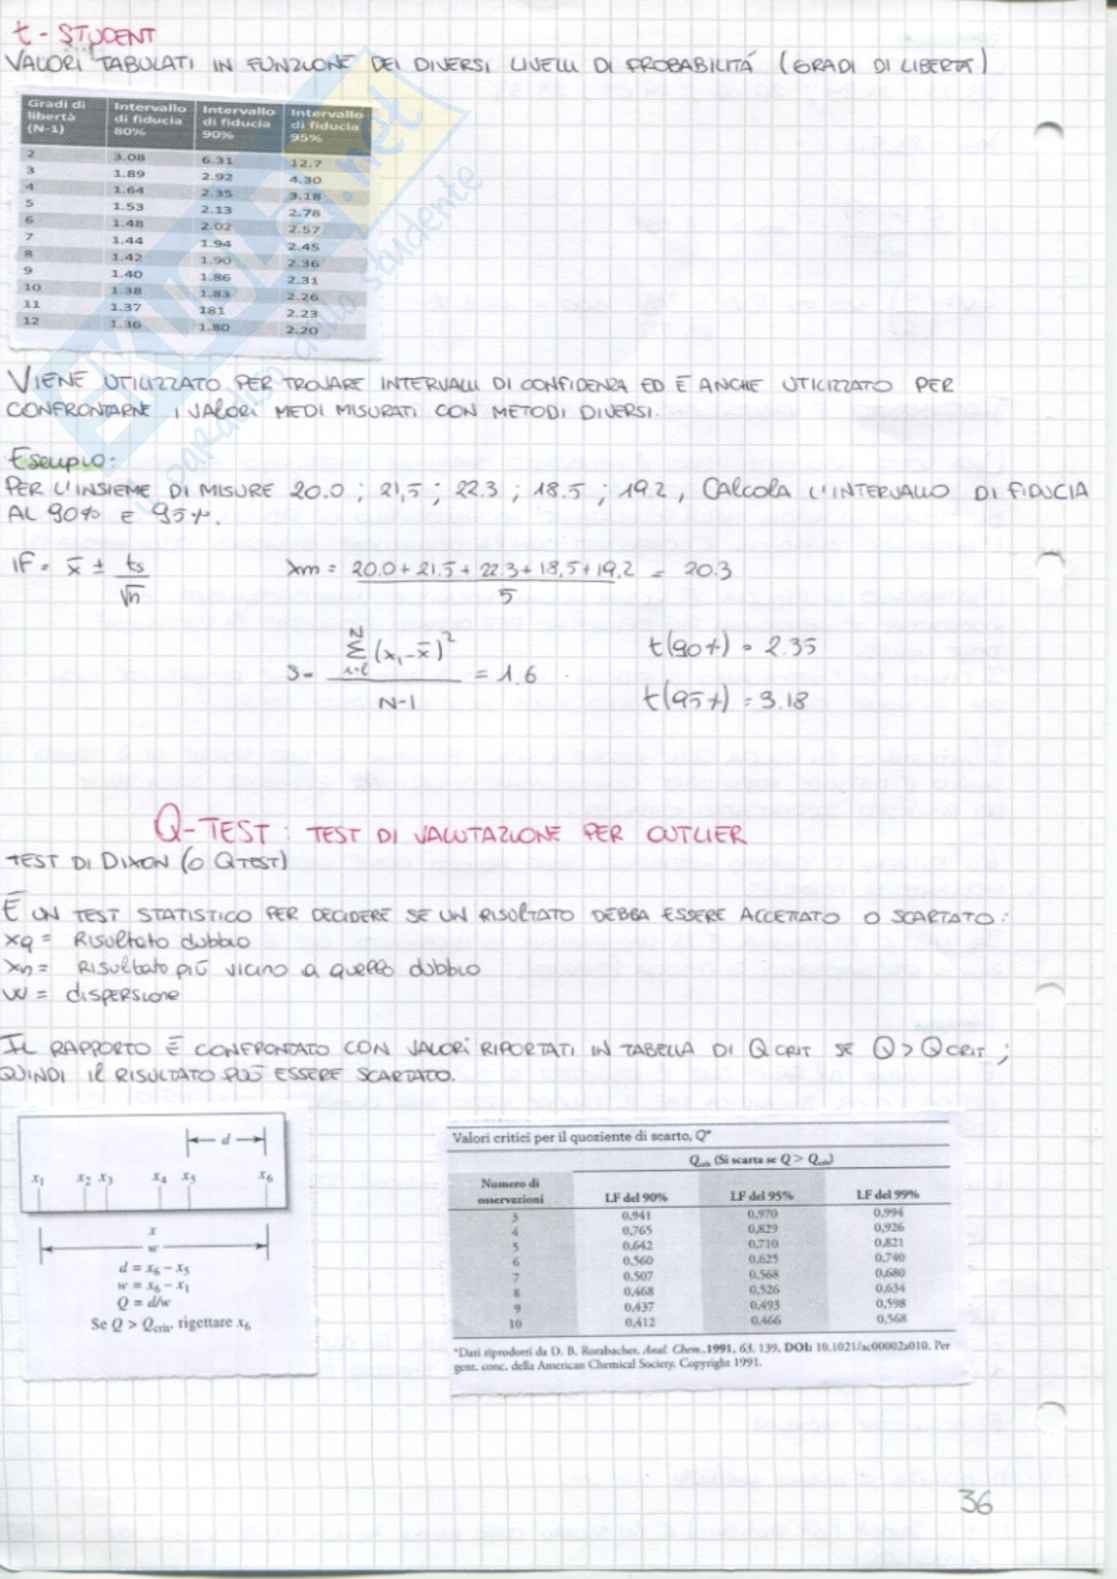 t - STUDENT
VALORI TABULATI IN FUNZIONE DEI DIVERSI LIVELLI DI PROBABILITÁ (GRADI DI LIBERTÀ)
Gradi di libertà (N-1) Intervallo di fiducia 80% Intervallo di fiducia 90% Intervallo di fiducia 95%
2 3.08 6.31 12.7
3 1.89 2.92 4.30
4 1.64 2.35 3.18
5 1.53 2.13 2.78
6 1.48 2.02 2.57
7 1.44 1.94 2.45
8 1.42 1.90 2.36
9 1.40 1.86 2.31
10 1.38 1.83 2.26
11 1.37 181 2.23
12 1.36 1.80 2.20
VIENE UTILIZZATO PER TROVARE INTERVALLI DI CONFIDENZA ED È ANCHE UTILIZZATO PER
CONFRONTARNE I VALORI MEDI MISURATI CON METODI DIVERSI.
Esempio:
PER L'INSIEME DI MISURE 20.0 ; 21,5 ; 22.3 ; 18.5 ; 19.2 , CALCOLA L'INTERVALLO DI FIDUCIA
AL 90% E 95%.
IF = x̄ ± ts/√n
xm = 20.0 + 21.5 + 22.3 + 18,5 + 19,2 / 5 = 20.3
s = Σ (xi - x̄)² / N-1 = 1.6
t(90%) = 2.35
t(95%) = 3.18
Q-TEST : TEST DI VALUTAZIONE PER OUTLIER
TEST DI DIXON (O QTEST)
È UN TEST STATISTICO PER DECIDERE SE UN RISULTATO DEBBA ESSERE ACCETTATO O SCARTATO:
xq = Risultato dubbio
xn = RISULTATO PIÙ VICINO A quello dubbio
W = DISPERSIONE
IL RAPPORTO È CONFRONTATO CON VALORI RIPORTATI IN TABELLA DI Q CRIT SE Q > Q CRIT ;
QUINDI IL RISULTATO PUÒ ESSERE SCARTATO.
d
x1 x2 x3 x4 x5 x6
x
w
d = x6 − x5
w = x6 − x1
Q = d/w
Se Q > Qcrit, rigettare x6
Valori critici per il quoziente di scarto, Q*
Qcrit (Si scarta se Q > Qcrit)
Numero di osservazioni LF del 90% LF del 95% LF del 99%
3 0,941 0,970 0,994
4 0,765 0,829 0,926
5 0,642 0,710 0,821
6 0,560 0,625 0,740
7 0,507 0,568 0,680
8 0,468 0,526 0,634
9 0,437 0,493 0,598
10 0,412 0,466 0,568
*Dati riprodotti da D. B. Rorabacher, Anal. Chem., 1991, 63, 139, DOI: 10.1021/ac00002a010. Per
gent. conc. della American Chemical Society. Copyright 1991.
36